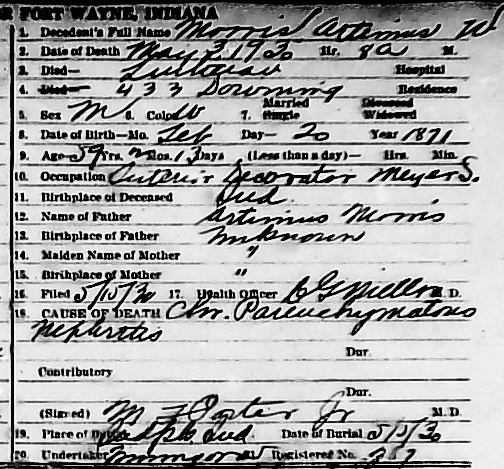 R FORT WAYNE, INDIANA
1. Decedent's Full Name Morris Artimus W
2. Date of Death May 3 1930 Hr. 8 a M.
3. Died— Lutheran Hospital
4. Died— 433 Downing Residence
5. Sex M 6. Color W 7. Married Single Divorced Widowed
8. Date of Birth—Mo. Feb Day— 20 Year 1871
9. Age 59 Yrs. 2 Mos. 13 Days (Less than a day)— Hrs. Min.
10. Occupation Interior Decorator Meyer S.
11. Birthplace of Deceased Ind.
12. Name of Father Artimus Morris
13. Birthplace of Father Unknown
14. Maiden Name of Mother "
15. Birthplace of Mother "
16. Filed 5/15/30 17. Health Officer M.D.
18. CAUSE OF DEATH Chr. Parenchymatous
Nephritis
Dur.
Contributory
Dur.
(Signed) M. F. Porter Jr M.D.
19. Place of Burial Ind. Date of Burial 5/5/30
20. Undertaker Registered No. 357